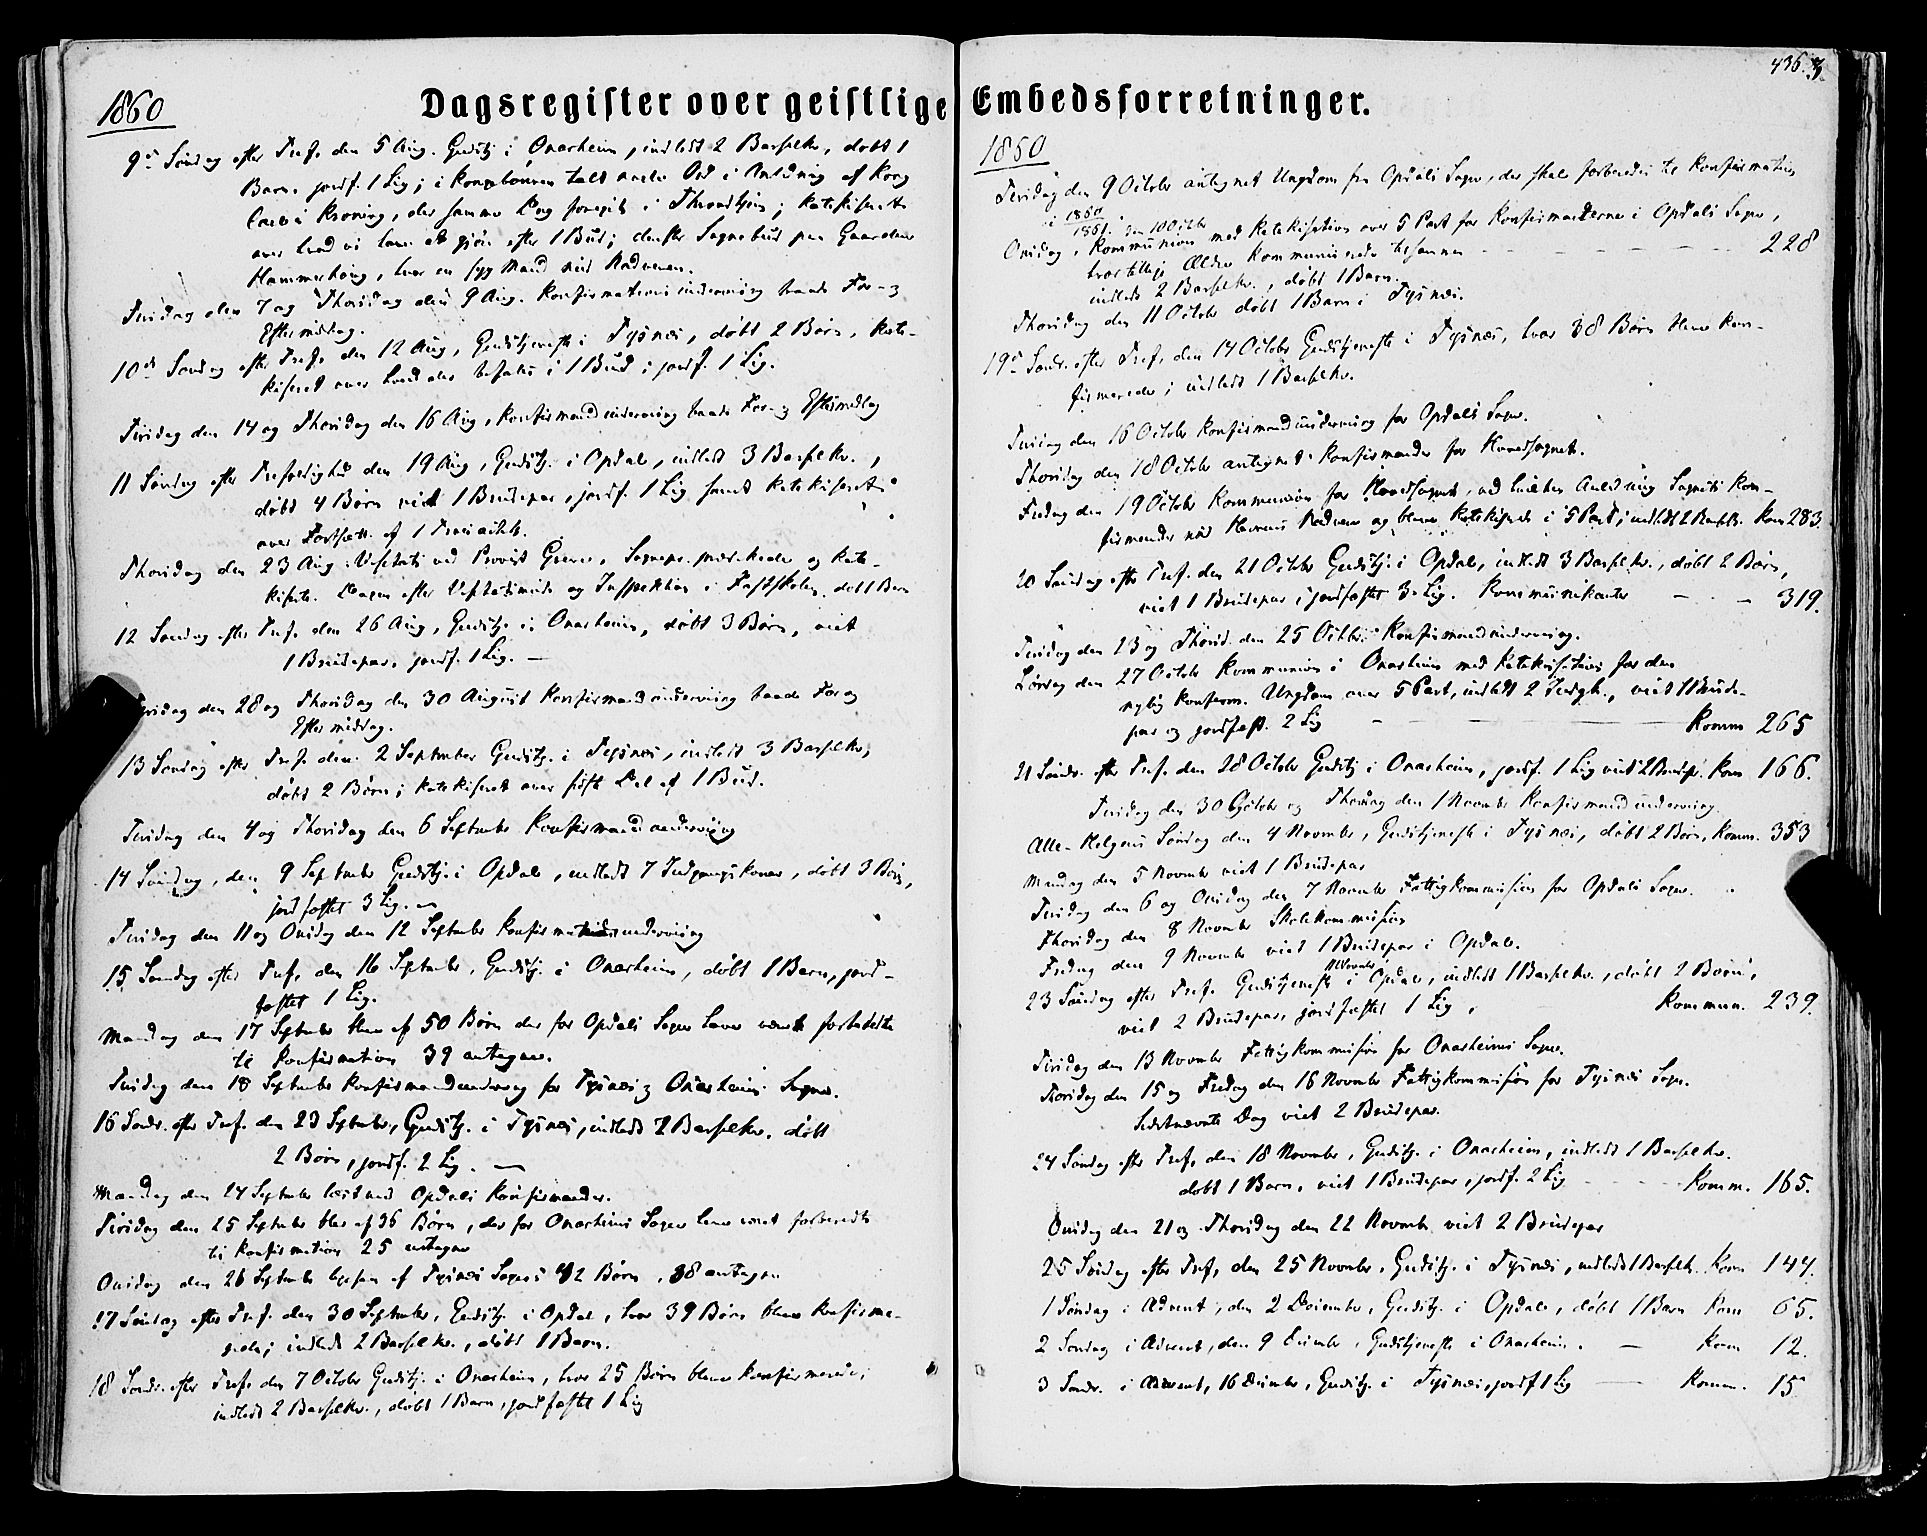 1860
Dagsregister over geistlige
9de Søndag efter Tref. den 5 Aug. Gudstj. i Onarheim, indledt 2 Barselkv., døbt 1
Barn, jordf. 1 Lig; i Korsbønnen talt nogle Ord i Anledning af Kong
Carls Kroning, der samme Dag foregik i Throndhjem; katekiseret
over hvad vi have at gjøre efter 1 Bud; derefter Sognebud paa Gaarden
Hammerhoug, hvor en syg Mand nød Nadveren.
Tirsdag den 7 og Thorsdag den 9 Aug. Konfirmationsundervisning baade For- og
Eftermiddag.
10de Søndag efter Tref. den 12 Aug, Gudstjeneste i Tysnæs, døbt 2 Børn, kate-
kiseret over hvad der befales i 1 Bud; jordf. 1 Lig.
Tirsdag den 14 og Thorsdag den 16 Aug, Konfirmandundervisning baade For- og Eftermiddag
11 Søndag efter Trefoldighed den 19 Aug, Gudstj. i Opdal, indledt 3 Barselkv.,
døbt 4 Børn viet 1 Brudepar, jordf. 1 Lig samt katekiseret
over Fortsætt. af 1 Troesartikel.
Thorsdag den 23 Aug Visitats ved Provst Greve, Sognepr. prædikede og kate-
kiserte. Dagen efter Visitatsmøde og Inspektion i Fastskolen. døbt 1 Barn
12 Søndag efter Tref. den 26 Aug, Gudstj. i Onarheim, døbt 3 Børn, viet
1 Brudepar, jordf. 1 Lig. —
Tirsdag den 28 og Thorsdag den 30 August Konfirmandundervisning baade For og
Eftermiddag.
13 Søndag efter Tref. den 2 September Gudstj. i Tysnæs, indledt 3 Barselkv,
døbt 2 Børn; katekiseret over sidste Del af 1 Bud.
Tirsdag den 4 og Thorsdag den 6 September Konfirmandundervisning
14 Søndag, den 9 September Gudstj. i Opdal, indledt 7 Indgangskoner, døbt 3 Børn,
jordfæstet 3 Lig. —
Tirsdag den 11 og Onsdag den 12 September Konfirmationsundervisning
15 Søndag efter Tref. den 16 September, Gudstj. i Onarheim, døbt 1 Barn, jord-
fæstet 1 Lig.
Mandag den 17 September blev af 50 Børn der for Opdals Sogn have været forberedte
til Konfirmation 39 antagne.
Tirsdag den 18 September Konfirmandundervisning for Tysnæs og Onarheims Sogne.
16 Sønd. efter Tref. den 23 September, Gudstj. i Tysnæs, indledt 2 Barselkv. døbt
2 Børn, jordf. 2 Lig. —
Mandag den 24 September læst med Opdals Konfirmander.
Tirsdag den 25 September blev af 36 Børn, der for Onarheims Sogn have været forberedte
til Konfirmation 25 antagne
Onsdag den 26 September ligesaa af Tysnæs Sogns 42 Børn, 38 antagne
17 Søndag efter Tref. den 30 September, Gudstj. i Opdal, hvor 39 Børn bleve konfirme-
rede; indledt 2 Barselkv., døbt 1 Barn.
18 Sønd. efter Tref. den 7 October Gudstj. i Onarheim, hvor 25 Børn bleve konfirmerede;
indledt 2 Barselkv., døbt 1 Barn, jordfæstet 1 Lig
436.
Embedsforretninger.
1860
Tirsdag den 9 October antegnet Ungdom fra Opdals Sogn, der skal forberedes til Konfirmation
i 1860/1861. den 10 Octbr
Onsdag, Kommunion med Katekisation over 5 Part for Konfirmanderne i Opdals Sogn,
hvor tillige Ældre kommunicerede tilsammen — — — 228
indledt 2 Barselkv., døbt 1 Barn.
Thorsdag den 11 October døbt 1 Barn i Tysnæs.
19de Sønd. efter Tref. den 14 October Gudstjeneste i Tysnæs, hvor 38 Børn bleve kon-
firmerede; indledt 1 Barselkv.
Tirsdag den 16 October Konfirmandundervisning for Opdals Sogn.
Thorsdag den 18 October antegnet Konfirmander for Hovedsognet.
Fredag den 19 October Kommunion for Hovedsognet, ved hvilken Anledning Sognets Kon-
firmander nød Herrens Nadvere og bleve katekiserede i 5 Part; indledt 2 Barselk. Kom 283.
20 Søndag efter Tref. den 21 October Gudstj. i Opdal, indledt 3 Barselkv., døbt 2 Børn,
viet 1 Brudepar, jordfæstet 3 Lig. Kommunikanter — — 319.
Tirsdag den 23 og Thorsd. den 25 Octbr. Konfirmandundervisning.
Lørdag den 27 October Kommunion i Onarheim med Katekisation for den
nylig konfirm. Ungdom over 5 Part, indledt 2 Indgk., viet 1 Brude-
par og jordfæst. 2 Lig — — — Komm 265
21 Sønd. efter Tref. den 28 October Gudstj i Onarheim, jordf. 1 Lig viet 2 Brudep. Kom 166.
Tirsdag den 30 October og Thorsdag den 1 November Konfirmandundervisning.
Alle-Helgens Søndag den 4 November, Gudstjeneste i Tysnæs, døbt 2 Børn, Komm. 353
Mandag den 5 November viet 1 Brudepar
Tirsdag den 6 og Onsdag den 7 November Fattigkommission for Opdals Sogn.
Thorsdag den 8 November Skolekommission
Fredag den 9 November viet 1 Brudepar i Opdal.
23 Søndag efter Tref. 11 November Gudstjeneste i Opdal, indledt 1 Barselkv., døbt 2 Børn,
viet 2 Brudepar, jordfæstet 1 Lig, Kommun. 239.
Tirsdag den 13 November Fattigkommission for Onarheims Sogn.
Thorsdag den 15 og Fredag den 16 November Fattigkommission for Tysnæs Sogn.
Sidstnævnte Dag viet 2 Brudepar.
24 Søndag efter Tref. den 18 November, Gudstj. i Onarheim, indledt 1 Barselkv.
døbt 1 Barn, viet 1 Brudepar, jordf. 2 Lig — — Komm. 165.
Onsdag den 21 og Thorsdag den 22 November viet 2 Brudepar
25 Søndag efter Tref. den 25 November, Gudstj. i Tysnæs, indledt 1 Barselk. Kom 144.
1 Søndag i Advent, den 2 December, Gudstj. i Opdal, døbt 1 Barn Kom 65.
2 Søndag i Advent, den 9 December, Gudstjeneste i Onarheim. — Kom 12.
3 Sønd. i Advent, 16 December, Gudstj. i Tysnæs, jordf 1 Lig — Komm. 15